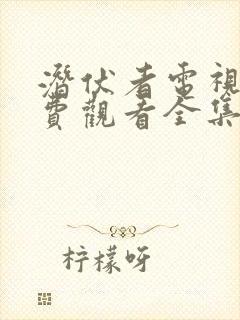 潛伏者電視
費觀看全集
柠檬呀